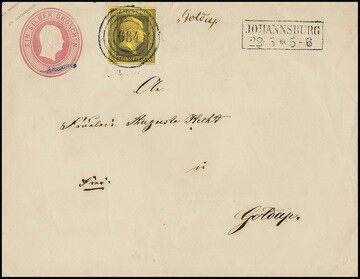 EIN SILBER GROSCHEN
684
Goldap
JOHANNSBURG
22 5 * 5-6
An
Fräulein Auguste
in
Frei.
Goldap.